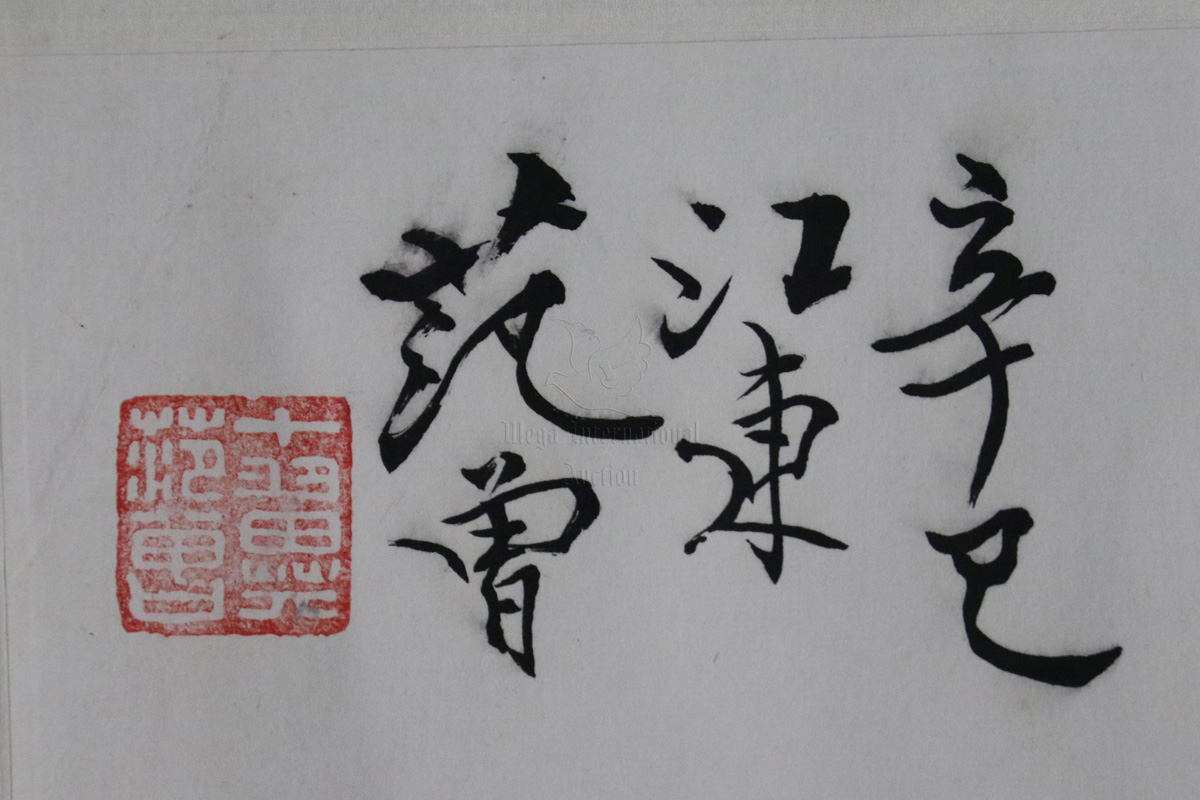 辛巳
江東
范曾
十翼
范曾
Mega International
Auction